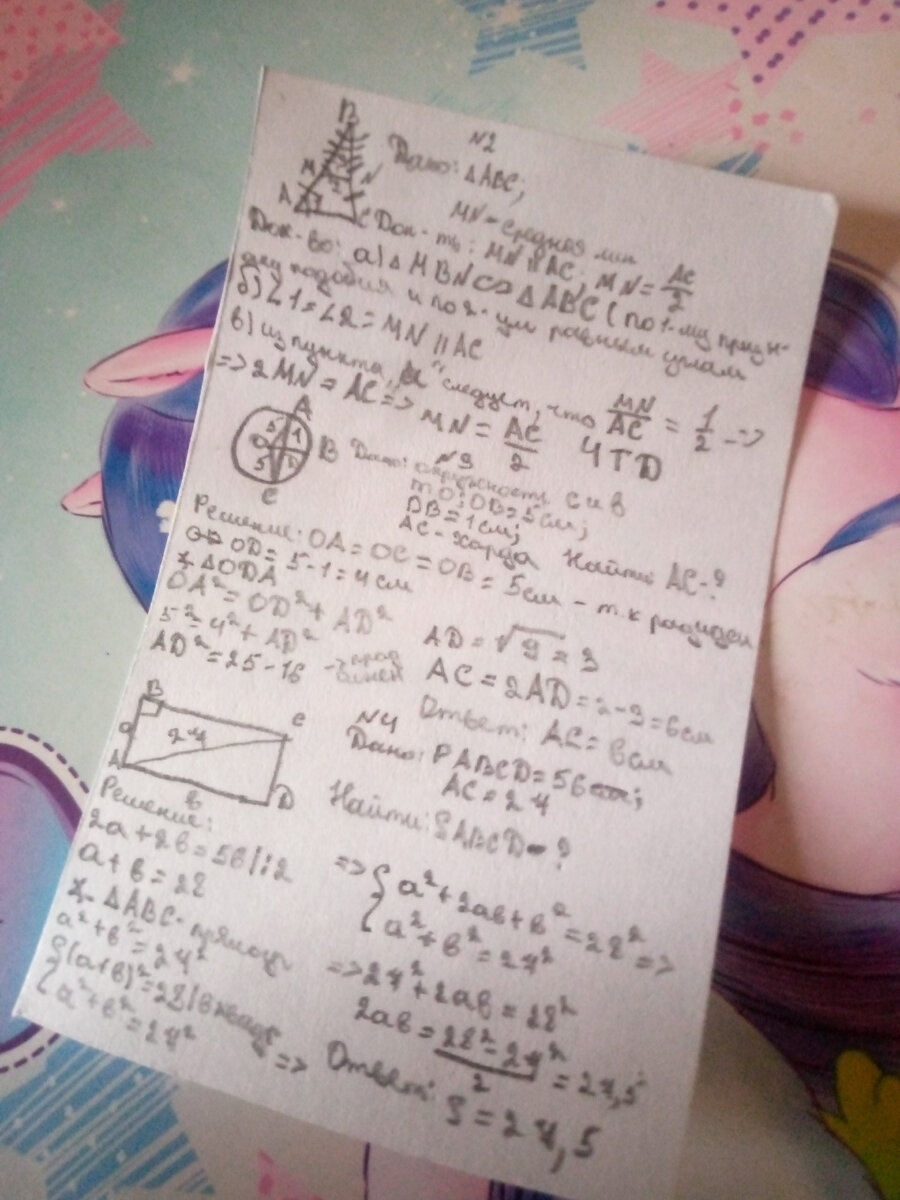 N2
B
M N
2
A 1 C
Дано: △ABC;
MN - средняя лин
Док-ть: MN || AC; MN = AC/2
Док-во: а) △MBN ∽ △ABC (по 1-му призн-
аку подобия и по 2-ум равным углам
б) ∠1 = ∠2 = MN || AC
в) из пункта „а" следует, что MN/AC = 1/2 =>
=> 2MN = AC => MN = AC/2 ЧТД
N3
A
5 1
O B
5 D
C
Дано: окружность с в
т.О; OB = 5см;
DB = 1см;
AC - хорда Найти: AC - ?
Решение: OA = OC = OB = 5см - т.к радиусы
OD = 5 - 1 = 4 см
△ODA
OA² = OD² + AD²
5² = 4² + AD²
AD² = 25 - 16
AD = √9 = 3
AC = 2AD = 2 - 3 = 6см
Ответ: AC = 6см
N4
B C
a 24
A в D
Дано: P ABCD = 56;
AC = 24
Найти: S ABCD - ?
Решение:
2a + 2в = 56 |:2
a + в = 28
△ABC - прямоуг
a² + в² = 24²
{(a+в)² = 28 | в квадр
{a² + в² = 24² =>
=> {a² + 2ав + в² = 28²
{a² + в² = 24² =>
=> 24² + 2ав = 28²
2ав = 28² - 24²/2 = 24,5
Ответ: S = 24,5